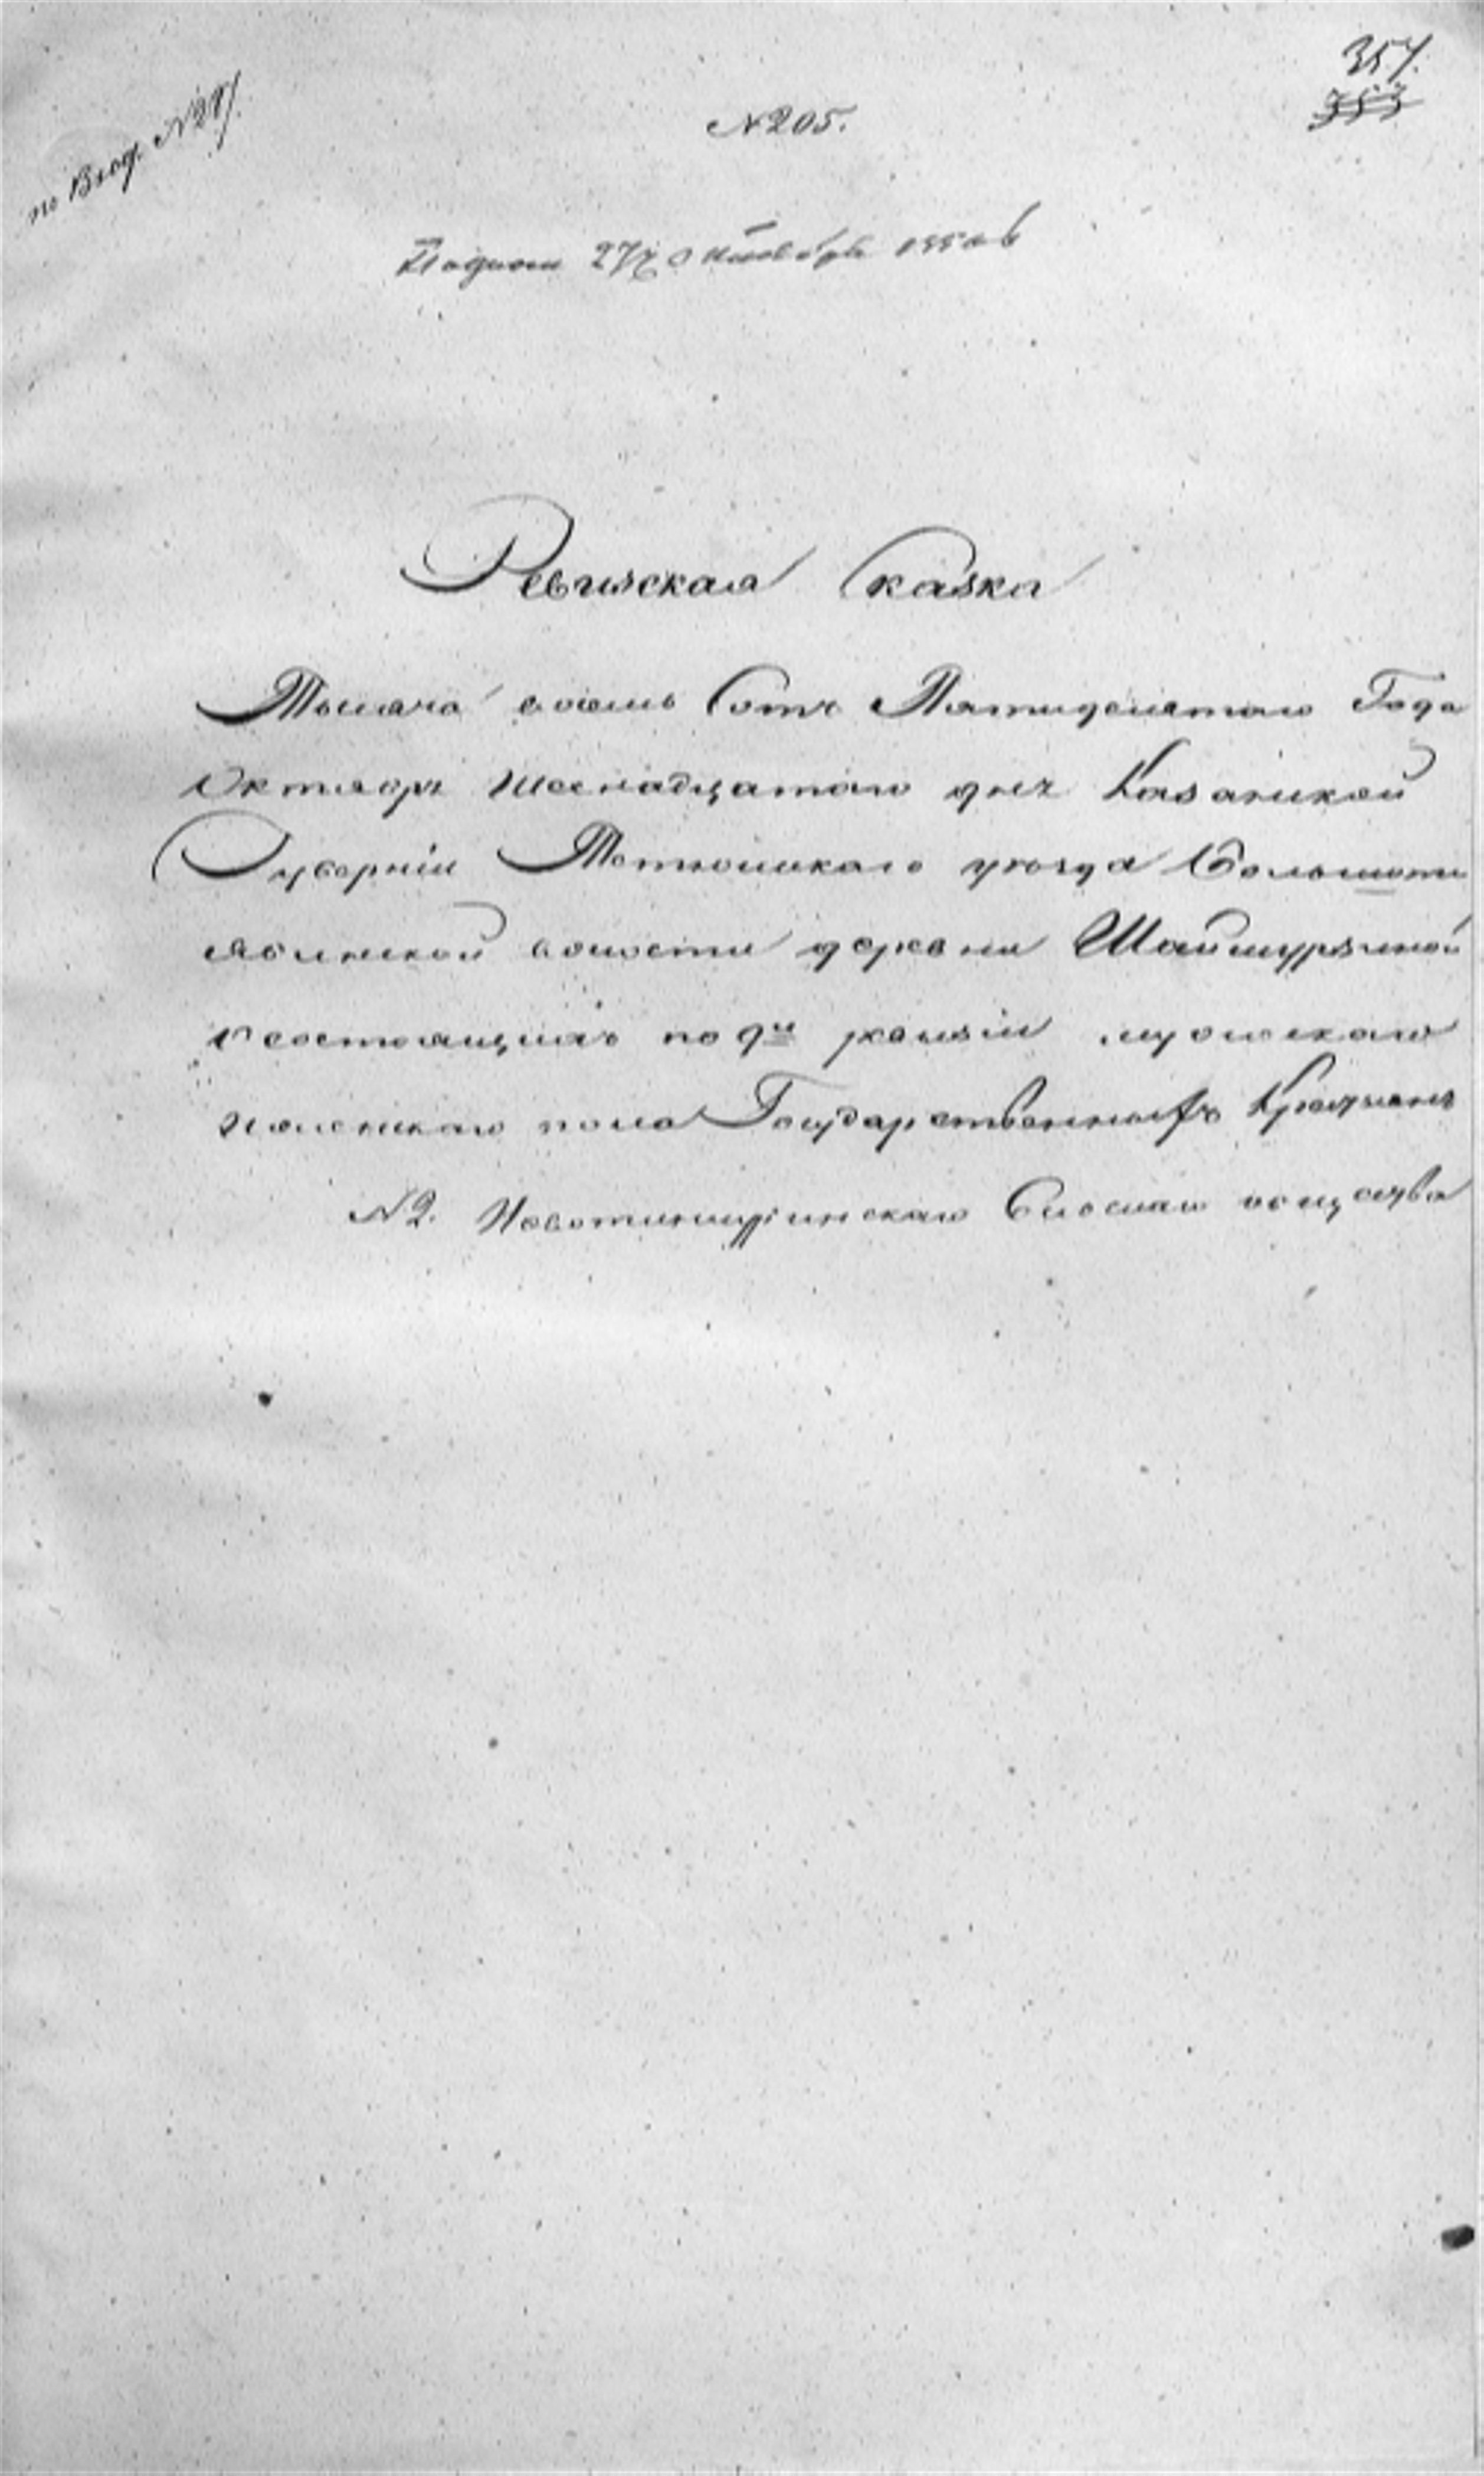 по Вход. №287.
357.
353
№ 205.
Подана 27го Октября 1850 г.
Ревизская Сказка
Тысяча восемь Сотъ Пятидесятаго Года
Октября Шеснадцатаго дня Казанской
Губерніи Тетюшскаго уѣзда Большети
ябинской волости деревни Шаймурзиной
о состоящихъ по 9й ревизіи мужскаго
и женскаго пола Государственныхъ Крестьянъ
№ 2. Новотинчалинскаго Сельскаго общества